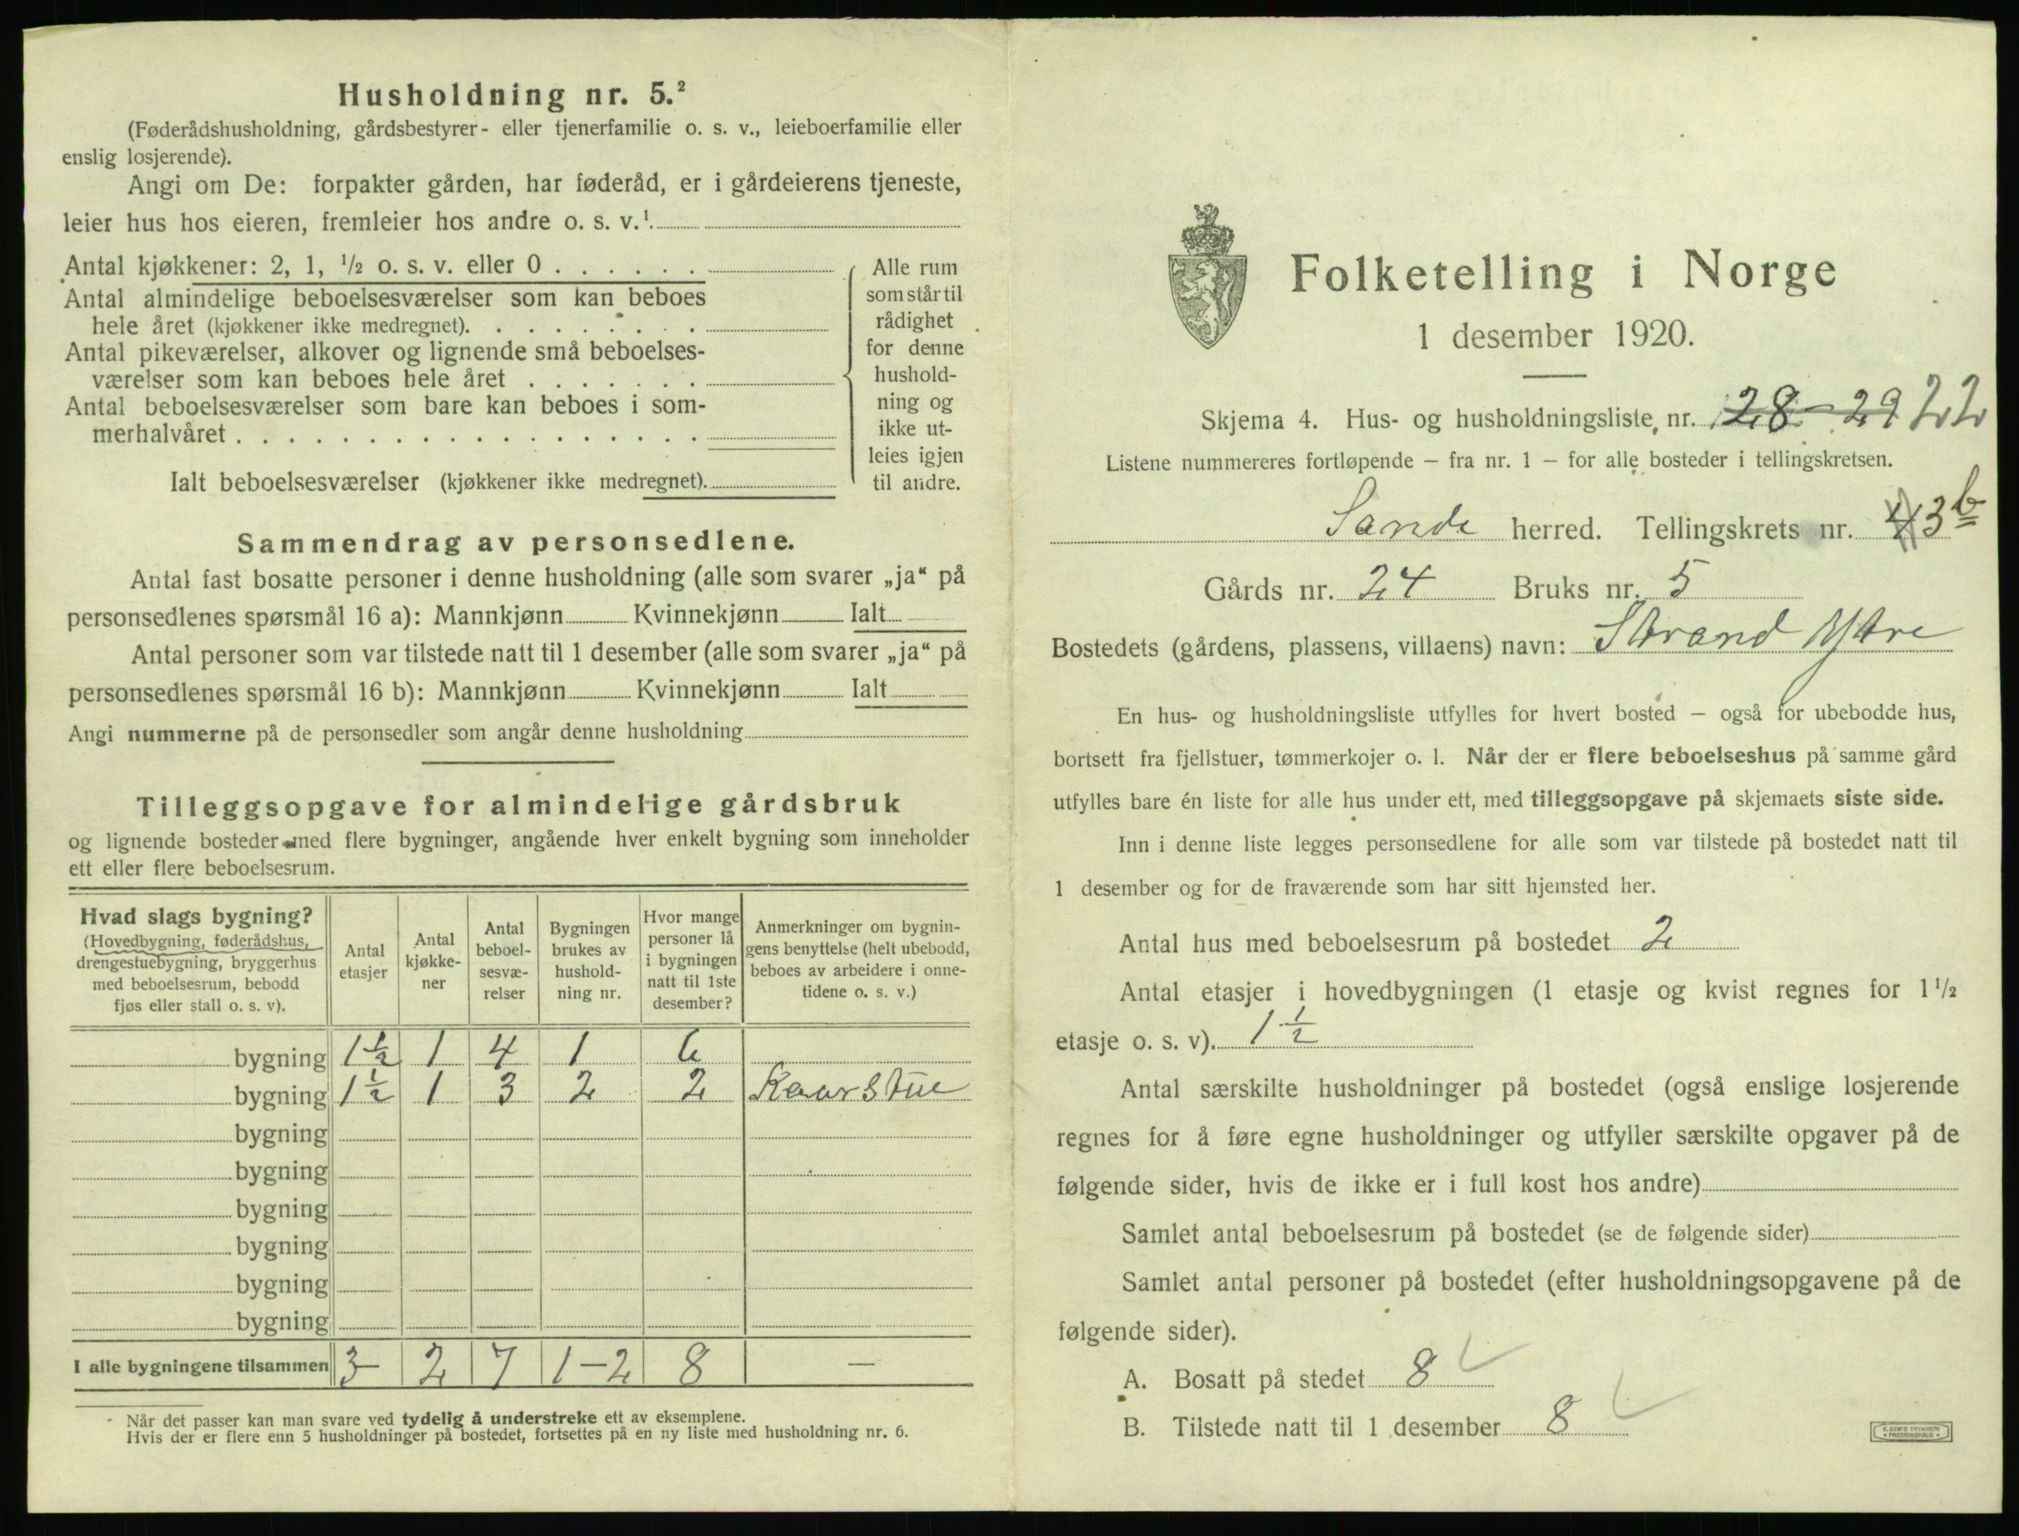 Husholdning nr. 5.²
(Føderådshusholdning, gårdsbestyrer- eller tjenerfamilie o. s. v., leieboerfamilie eller
enslig losjerende).
Angi om De: forpakter gården, har føderåd, er i gårdeierens tjeneste,
leier hus hos eieren, fremleier hos andre o. s. v.¹
Antal kjøkkener: 2, 1, ½ o. s. v. eller 0 . . . . . .
Antal almindelige beboelsesværelser som kan beboes
hele året (kjøkkener ikke medregnet). . . . . . . . .
Antal pikeværelser, alkover og lignende små beboelses-
værelser som kan beboes hele året . . . . . . .
Antal beboelsesværelser som bare kan beboes i som-
merhalvåret . . . . . . . . . . . . . . . . . .
Ialt beboelsesværelser (kjøkkener ikke medregnet).
Alle rum
som står til
rådighet
for denne
hushold-
ning og
ikke ut-
leies igjen
til andre.
Sammendrag av personsedlene.
Antal fast bosatte personer i denne husholdning (alle som svarer „ja“ på
personsedlenes spørsmål 16 a): Mannkjønn Kvinnekjønn Ialt
Antal personer som var tilstede natt til 1 desember (alle som svarer „ja“ på
personsedlenes spørsmål 16 b): Mannkjønn Kvinnekjønn Ialt
Angi nummerne på de personsedler som angår denne husholdning
Tilleggsopgave for almindelige gårdsbruk
og lignende bosteder med flere bygninger, angående hver enkelt bygning som inneholder
ett eller flere beboelsesrum.
Hvad slags bygning?
(Hovedbygning, føderådshus,
drengestuebygning, bryggerhus
med beboelsesrum, bebodd
fjøs eller stall o. s. v).
Antal
etasjer
Antal
kjøkke-
ner
Antal
beboel-
sesvæ-
relser
Bygningen
brukes av
hushold-
ning nr.
Hvor mange
personer lå
i bygningen
natt til 1ste
desember?
Anmerkninger om bygnin-
gens benyttelse (helt ubebodd,
beboes av arbeidere i onne-
tidene o. s. v.)
bygning 1½ 1 4 1 6
bygning 1½ 1 3 2 2 Kaarstue
bygning
bygning
bygning
bygning
bygning
bygning
I alle bygningene tilsammen 3- 2 7 1-2 8 —
¹ Når det passer kan man svare ved tydelig å understreke ett av eksemplene.
Hvis der er flere enn 5 husholdninger på bostedet, fortsettes på en ny liste med husholdning nr. 6.
Folketelling i Norge
1 desember 1920.
Skjema 4. Hus- og husholdningsliste nr. 28-29 22
Listene nummereres fortløpende – fra nr. 1 – for alle bosteder i tellingskretsen.
Sande herred. Tellingskrets nr. 4 3 b
Gårds nr. 24 Bruks nr. 5
Bostedets (gårdens, plassens, villaens) navn: Strand Ytre
En hus- og husholdningsliste utfylles for hvert bosted – også for ubebodde hus,
bortsett fra fjellstuer, tømmerkojer o. l. Når der er flere beboelseshus på samme gård
utfylles bare én liste for alle hus under ett, med tilleggsopgave på skjemaets siste side.
Inn i denne liste legges personsedlene for alle som var tilstede på bostedet natt til
1 desember og for de fraværende som har sitt hjemsted her.
Antal hus med beboelsesrum på bostedet 2
Antal etasjer i hovedbygningen (1 etasje og kvist regnes for 1½
etasje o. s. v). 1½
Antal særskilte husholdninger på bostedet (også enslige losjerende
regnes for å føre egne husholdninger og utfyller særskilte opgaver på de
følgende sider, hvis de ikke er i full kost hos andre)
Samlet antal beboelsesrum på bostedet (se de følgende sider)
Samlet antal personer på bostedet (efter husholdningsopgavene på de
følgende sider).
A. Bosatt på stedet 8
B. Tilstede natt til 1 desember 8